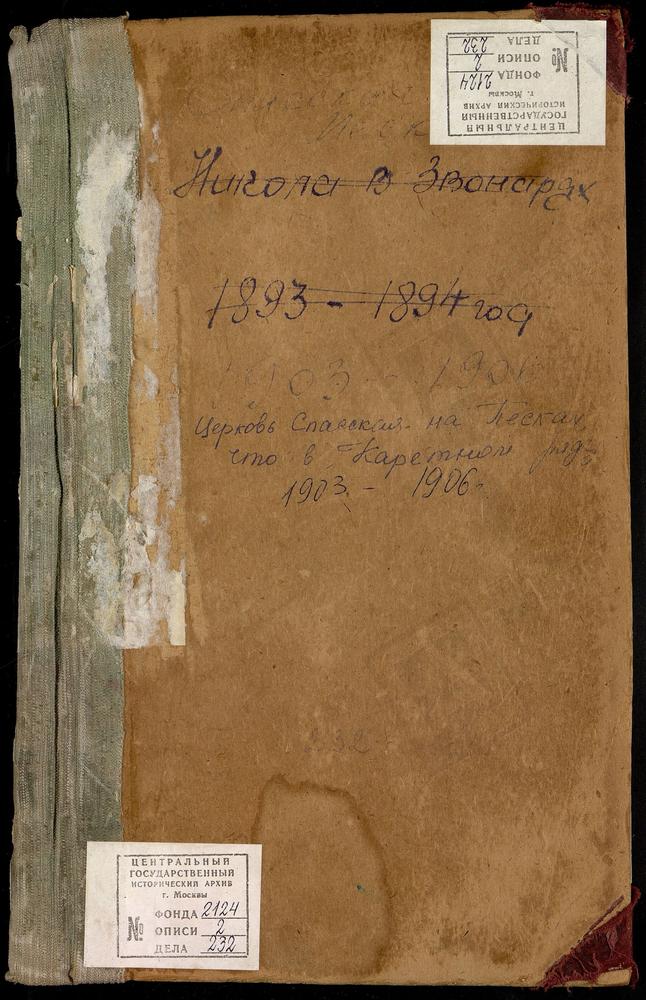 ЦЕНТРАЛЬНЫЙ
ГОСУДАРСТВЕННЫЙ
ИСТОРИЧЕСКИЙ АРХИВ
г. Москвы
№ ФОНДА 2124
ОПИСИ 2
ДЕЛА 232
Никола в Звонарях
1893 - 1894 год
1903 - 190
Церковь Спасская на Песках,
что в Каретном ряду
1903 - 1906
232
ЦЕНТРАЛЬНЫЙ
ГОСУДАРСТВЕННЫЙ
ИСТОРИЧЕСКИЙ АРХИВ
г. Москвы
№ ФОНДА 2124
ОПИСИ 2
ДЕЛА 232